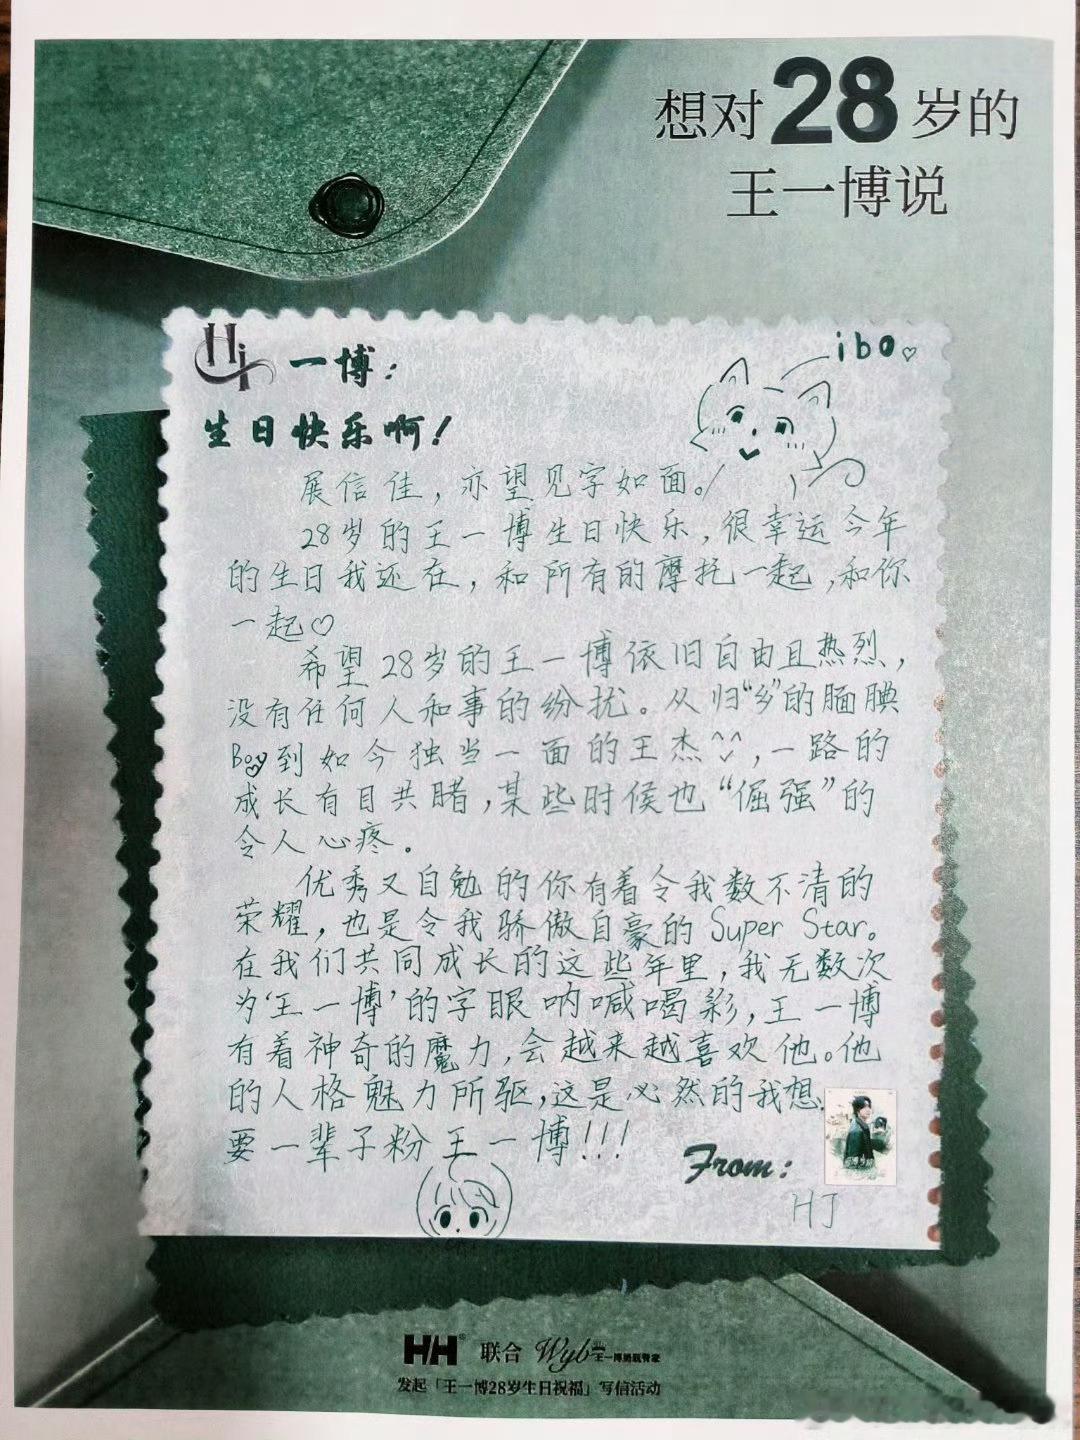 想对28岁的
王一博说
Hi 一博:
ibo♡
生日快乐啊!
展信佳,亦望见字如面。
28岁的王一博生日快乐,很幸运今年
的生日我还在,和所有的摩托一起,和你
一起♡
希望28岁的王一博依旧自由且热烈,
没有任何人和事的纷扰。从归“乡”的腼腆
Boy到如今独当一面的王杰^⌄^,一路的
成长有目共睹,某些时候也“倔强”的
令人心疼。
优秀又自勉的你有着令我数不清的
荣耀,也是令我骄傲自豪的Super Star。
在我们共同成长的这些年里,我无数次
为‘王一博’的字眼呐喊喝彩,王一博
有着神奇的魔力,会越来越喜欢他。他
的人格魅力所驱,这是必然的我想
要一辈子粉王一博!!!
From:
HJ
HH® 联合 Wyb
发起「王一博28岁生日祝福」写信活动